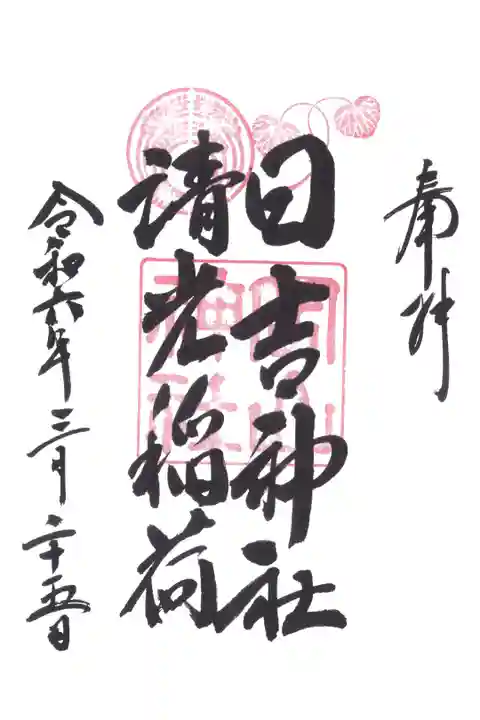 奉拝
日吉神社
請老稲荷
令和六年三月二十五日